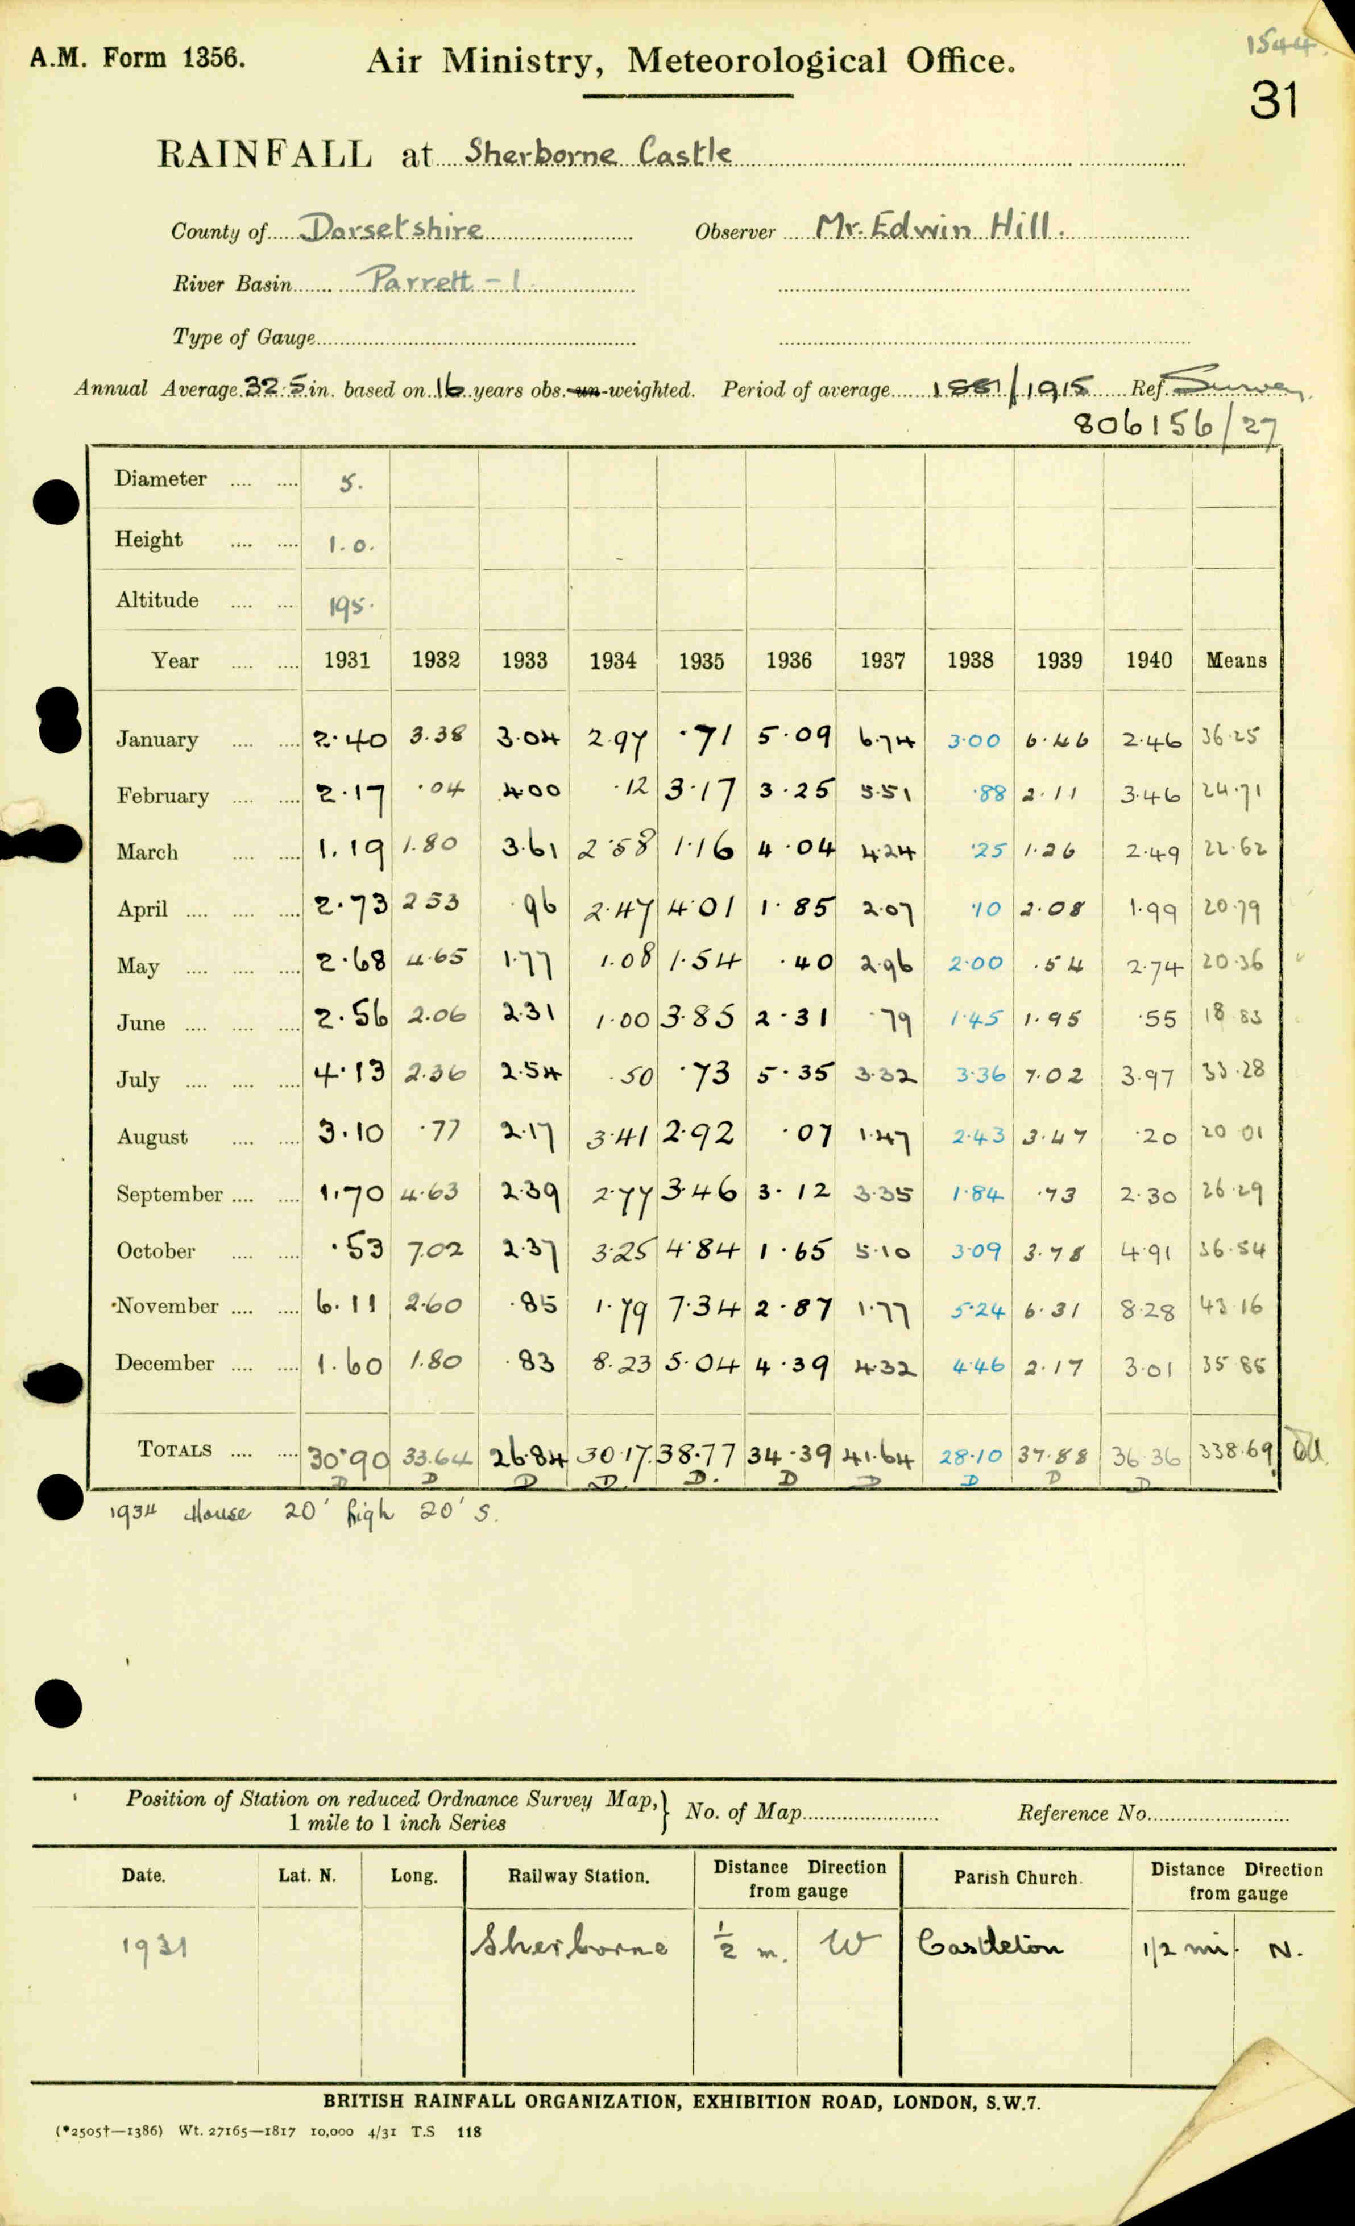 A.M. Form 1356.
Air Ministry, Meteorological Office.
1544
31
RAINFALL at Sherborne Castle
County of Dorsetshire Observer Mr. Edwin Hill.
River Basin Parrett - 1.
Type of Gauge
Annual Average 32.5 in. based on 16 years obs. un-weighted. Period of average 1881/1915 Ref. Survey
806156/27
Diameter 5.
Height 1.0.
Altitude 195.
Year 1931 1932 1933 1934 1935 1936 1937 1938 1939 1940 Means
January 2.40 3.38 3.04 2.97 .71 5.09 6.74 3.00 6.46 2.46 36.25
February 2.17 .04 4.00 .12 3.17 3.25 5.51 .88 2.11 3.46 24.71
March 1.19 1.80 3.61 2.58 1.16 4.04 4.24 .25 1.26 2.49 22.62
April 2.73 2 53 .96 2.47 4.01 1.85 2.07 .10 2.08 1.99 20.79
May 2.68 4.65 1.77 1.08 1.54 .40 2.96 2.00 .54 2.74 20.36
June 2.56 2.06 2.31 1.00 3.85 2.31 .79 1.45 1.95 .55 18 83
July 4.13 2.36 2.54 .50 .73 5.35 3.32 3.36 7.02 3.97 33.28
August 3.10 .77 2.17 3.41 2.92 .07 1.47 2.43 3.47 .20 20 01
September 1.70 4.63 2.39 2.77 3.46 3.12 3.35 1.84 .73 2.30 26.29
October .53 7.02 2.37 3.25 4.84 1.65 5.10 3.09 3.78 4.91 36.54
November 6.11 2.60 .85 1.79 7.34 2.87 1.77 5.24 6.31 8.28 43.16
December 1.60 1.80 .83 8.23 5.04 4.39 4.32 4.46 2.17 3.01 35 85
TOTALS 30.90 33.64 26.84 30.17. 38.77 34.39 41.64 28.10 37.88 36.36 338.69
D D D D. D. D D D D D
1934 House 20' high 20' S.
Position of Station on reduced Ordnance Survey Map, 1 mile to 1 inch Series } No. of Map Reference No.
Date. Lat. N. Long. Railway Station. Distance Direction from gauge Parish Church. Distance Direction from gauge
1931 Sherborne 1/2 m. W Castleton 1/2 mi. N.
BRITISH RAINFALL ORGANIZATION, EXHIBITION ROAD, LONDON, S.W.7.
(*2505†—1386) Wt. 27165—1817 10,000 4/31 T.S 118